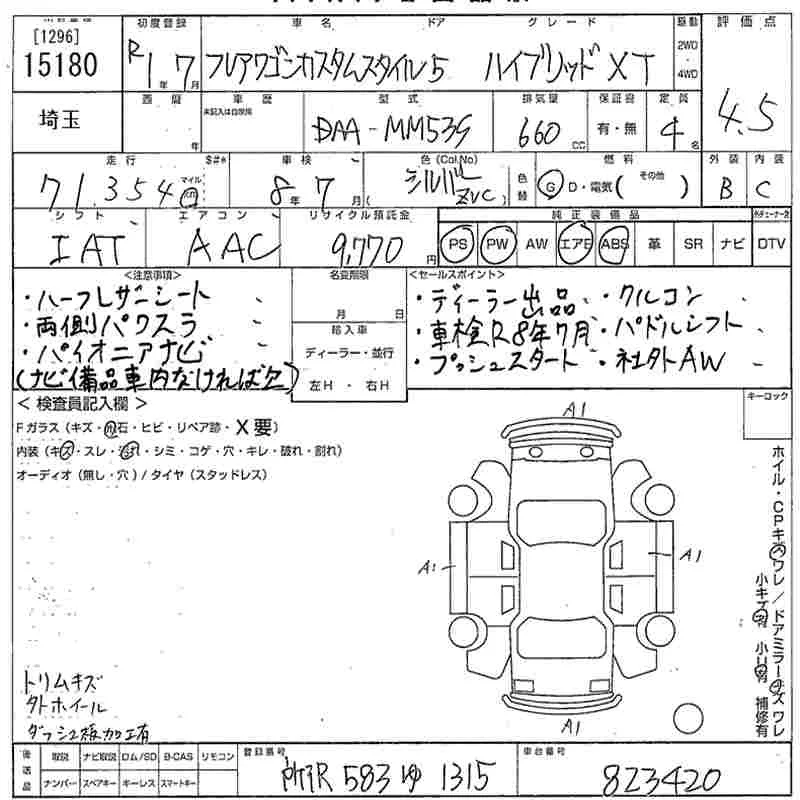 [1296]
15180
初度登録
R1年7月
車名 ドア グレード
フレアワゴンカスタムスタイル5 ハイブリッド XT
駆動
2WD
・
4WD
評価点
4.5
埼玉
西暦
年
車歴
未記入は自家用
型式
DAA-MM53S
排気量
660cc
保証書
有・無
定員
4名
走行 $#*
71,354 マイル km
車検
8年7月
色(Col,No)
シルバー
(ZVC)
色替
燃料
G D・電気( その他 )
外装
B
内装
C
シフト
IAT
エアコン
AAC
リサイクル預託金
9,770円
純正装備品
PS PW AW エアB ABS 革 SR ナビ DTV
<注意事項>
・ハーフレザーシート
・両側パワスラ
・パイオニアナビ
(ナビ備品車内なければ欠)
名変期限
月 日
輸入車
ディーラー・並行
左H ・ 右H
<セールスポイント>
・ディーラー出品 ・クルコン
・車検R8年7月 ・パドルシフト
・プッシュスタート ・社外AW
<検査員記入欄>
Fガラス(キズ・飛石・ヒビ・リペア跡・X要)
内装(キズ・スレ・汚れ・シミ・コゲ・穴・キレ・破れ・割れ)
オーディオ(無し・穴)/タイヤ(スタッドレス)
キーロック
A1
A1
A1
A1
ホイル・CPキズ ワレ/ドアミラーキズ ワレ
小キズ有 小凹有 補修有
トリムキズ
外ホイール
ダッシュ板加工有
後送品
取説 ナビ取説 ロム/SD B-CAS リモコン
ナンバー スペアキー キーレス スマートキー
登録番号
所沢 583 ゆ 1315
車台番号
823420